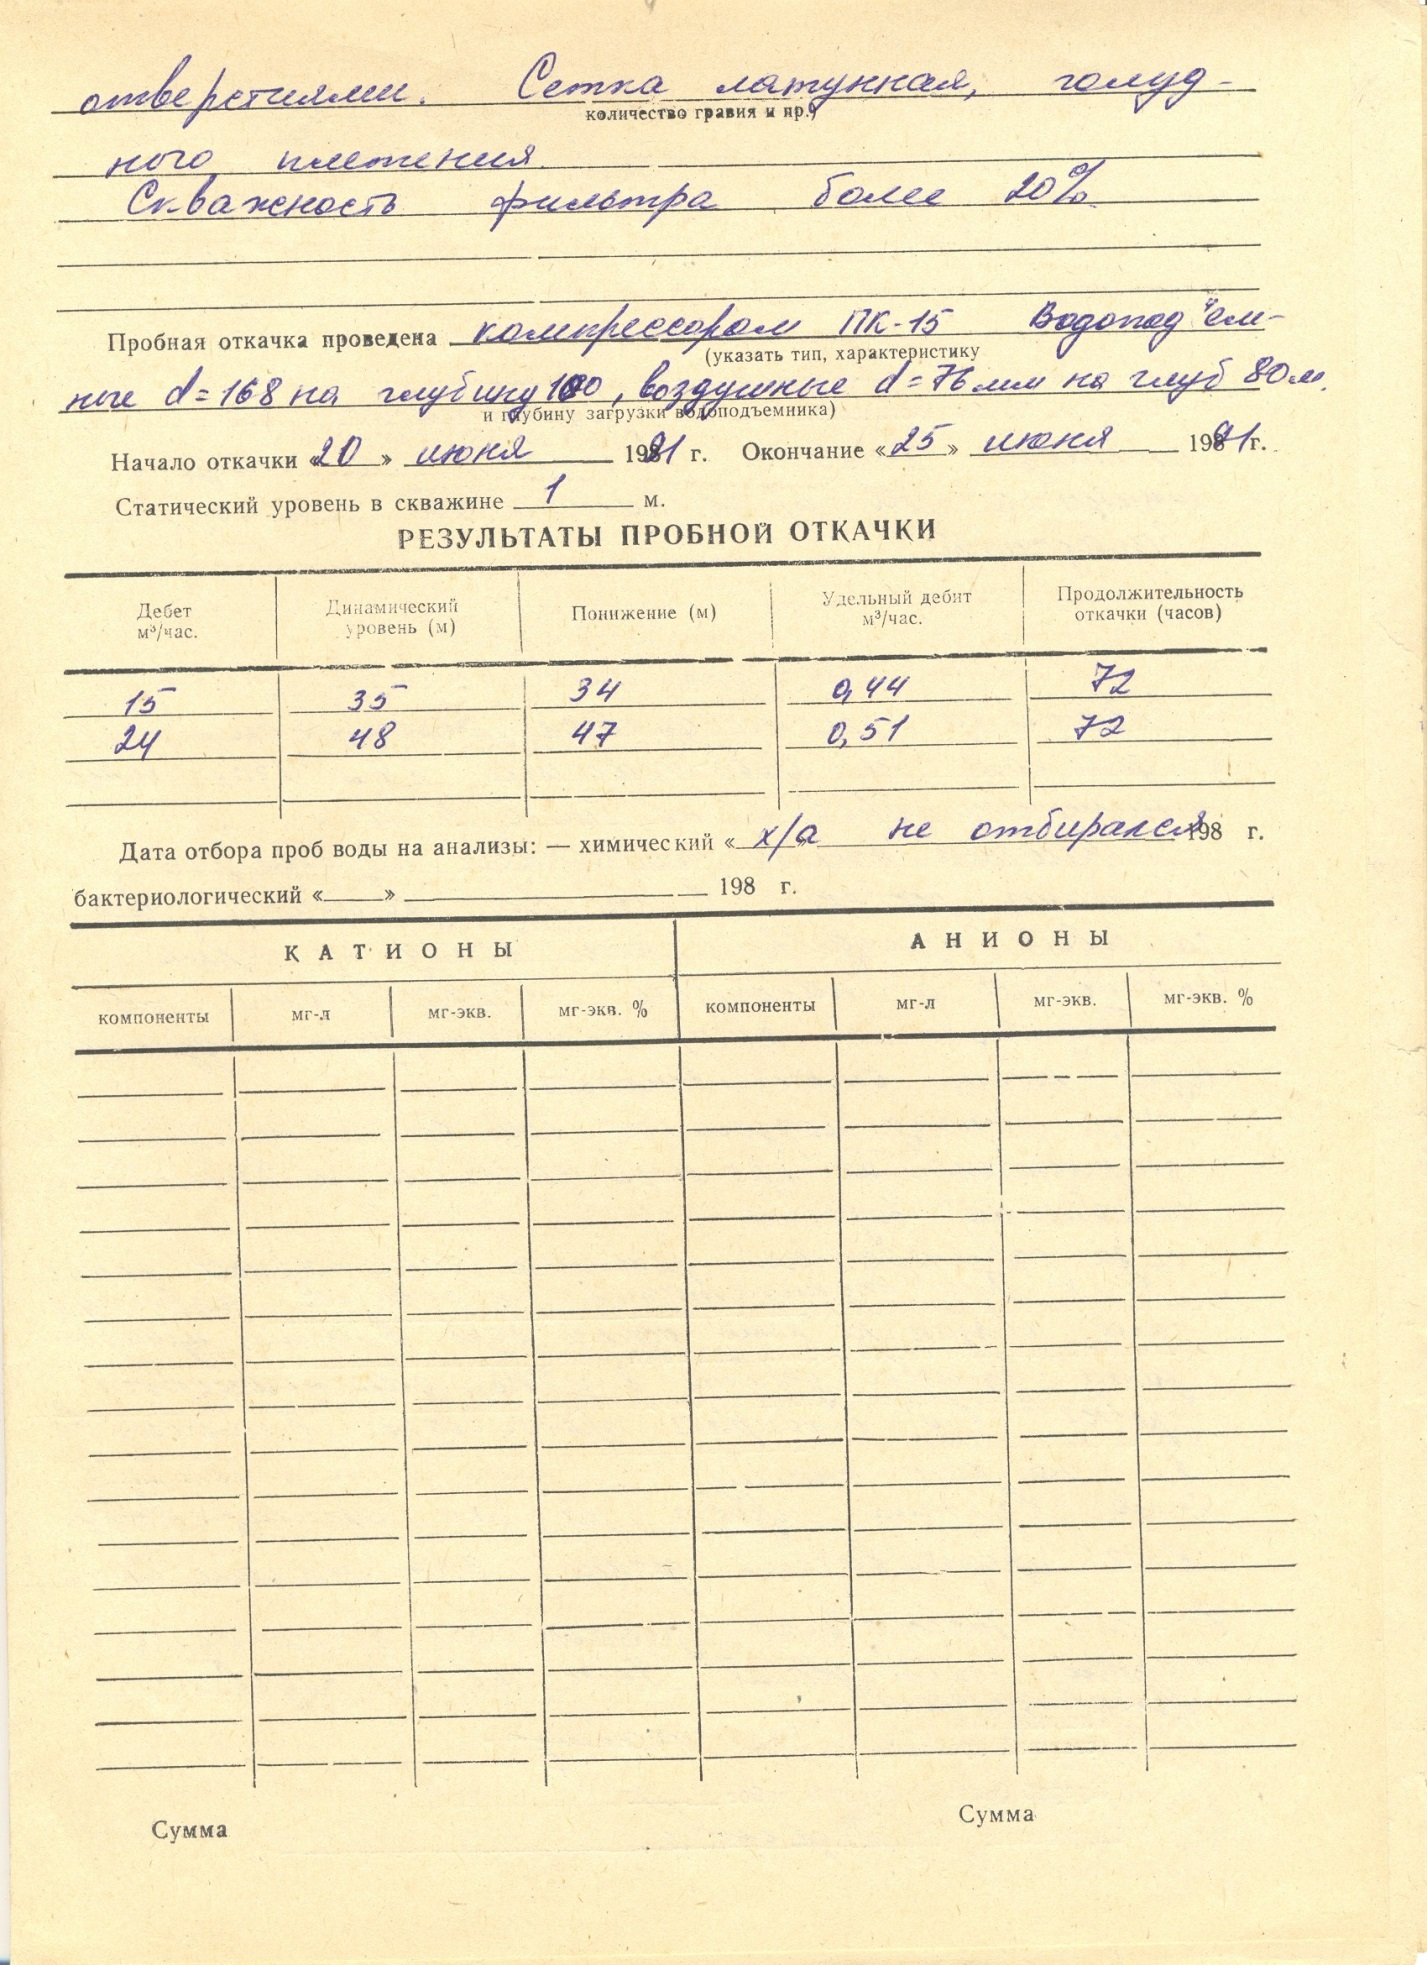 отверстиями. Сетка латунная, голуд-
количество гравия и пр.)
ного плетения.
Скважность фильтра более 20%
Пробная откачка проведена компрессором ПК-15 Водопод"ем-
(указать тип, характеристику
ные d=168 на глубину 100, воздушные d=76мм на глуб 80м.
и глубину загрузки водоподъемника)
Начало откачки «20» июня 1991 г. Окончание «25» июня 1991г.
Статический уровень в скважине 1 м.
РЕЗУЛЬТАТЫ ПРОБНОЙ ОТКАЧКИ
Дебет м³/час. Динамический уровень (м) Понижение (м) Удельный дебит м³/час. Продолжительность откачки (часов)
15 35 34 0,44 72
24 48 47 0,51 72
Дата отбора проб воды на анализы: — химический « х/а не отбирался 198 г.
бактериологический « » 198 г.
КАТИОНЫ АНИОНЫ
компоненты мг-л мг-экв. мг-экв. % компоненты мг-л мг-экв. мг-экв. %
Сумма Сумма